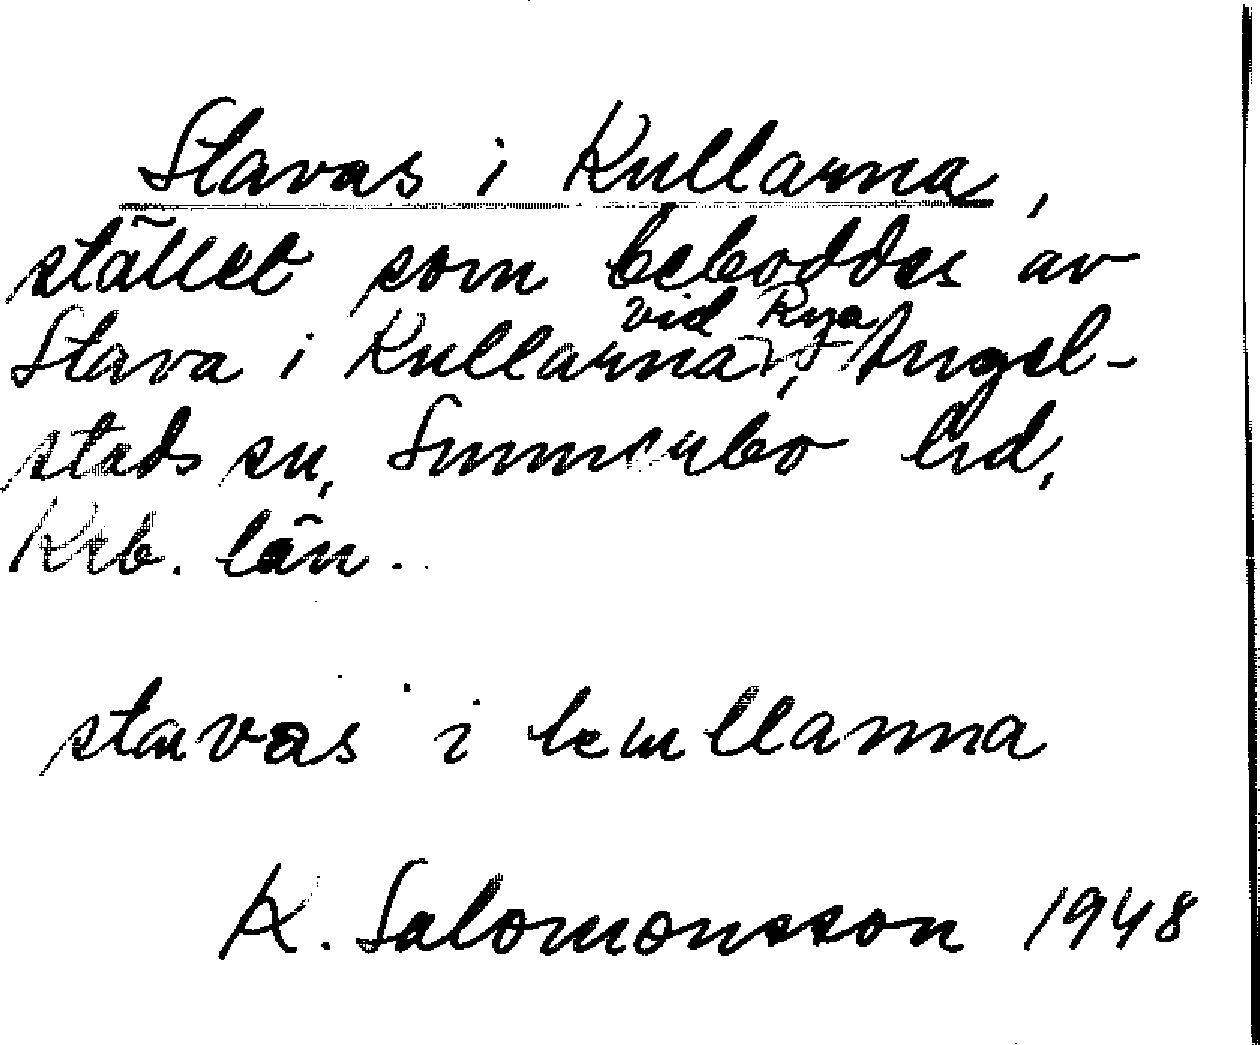 Stavas i Kullarna,
stället som beboddes av
Stava i Kullarna vid Rya, Angel-
steds sn, Sunnerbo hd,
Krb. län.
stavas i kullanna
K. Salomonsson 1948